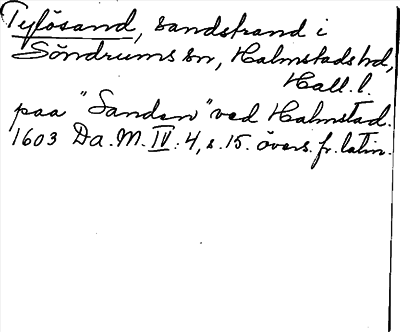 Tylösand, sandstrand i
Söndrums sn, Halmstads hd,
Hall. l.
paa "Sanden" ved Halmstad.
1603 Da. M. IV: 4, s. 15. övers. fr. latin.